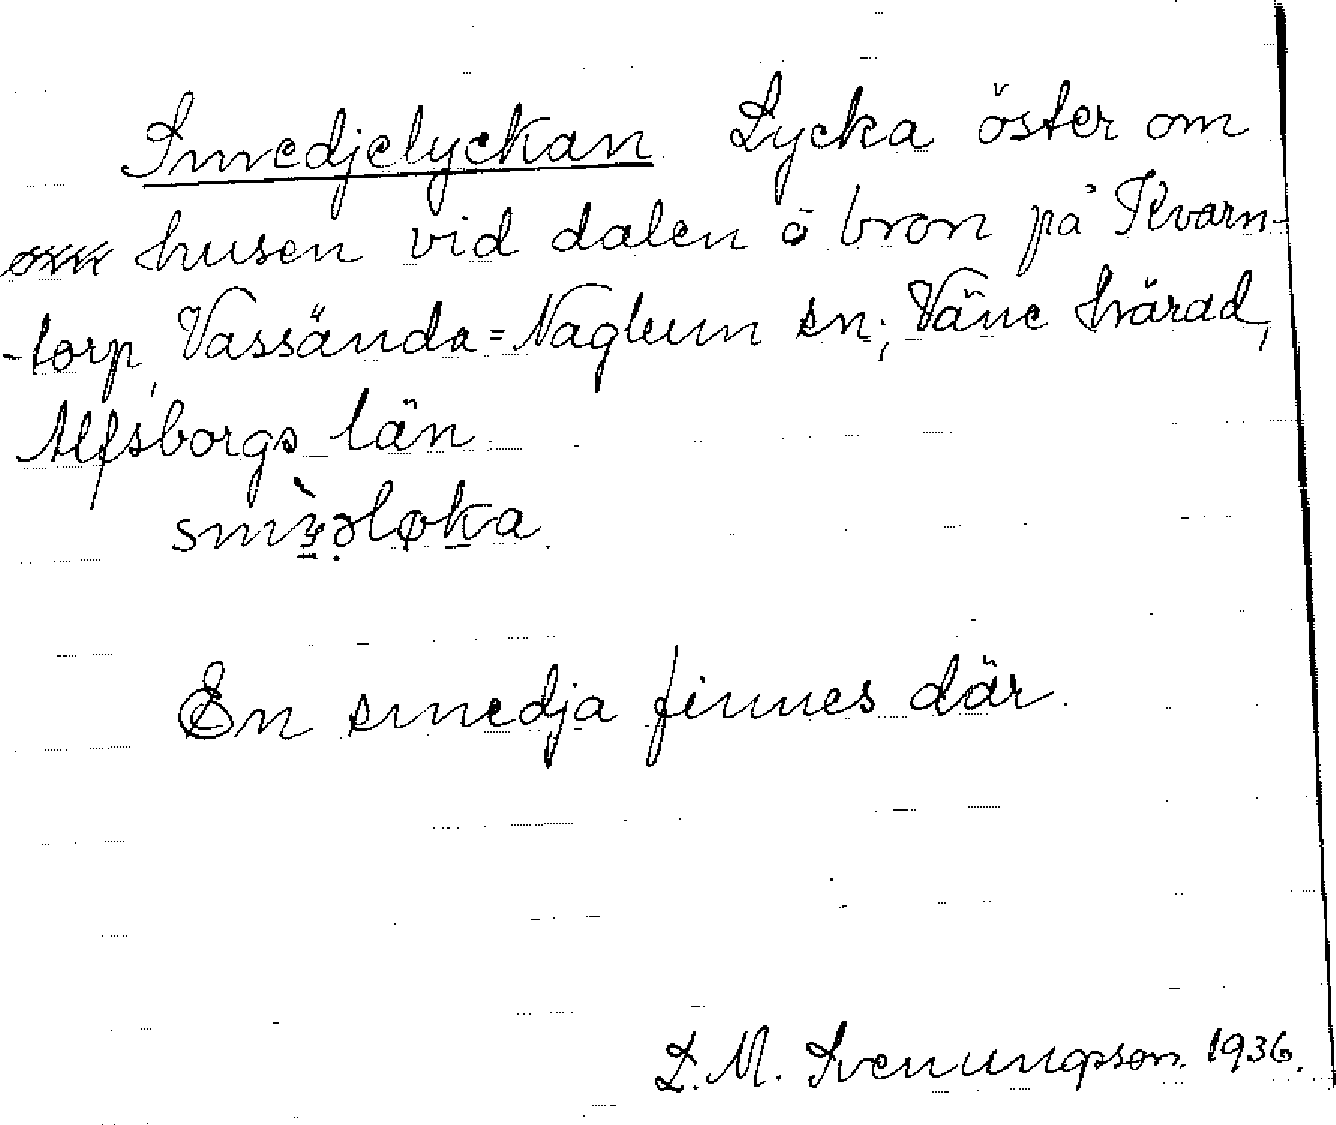 Smedjelyckan Lycka öster om
husen vid dalen o bron på Kvarn-
-torp, Vassända=Naglum sn; Väne härad,
Alfsborgs län
En smedja finnes där.
L. M. Svenungsson. 1936.